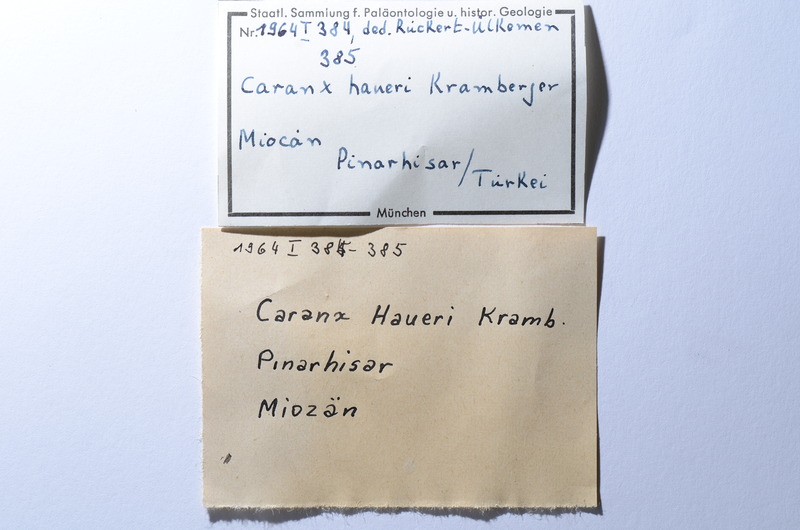 Staatl. Sammlung f. Paläontologie u. histor. Geologie
Nr. 1964 I 384, ded. Rückert-Ülkümen
385
Caranx haueri Kramberger
Miocän
Pinarhisar/Türkei
München
1964 I 384-385
Caranx Haueri Kramb.
Pınarhisar
Miozän